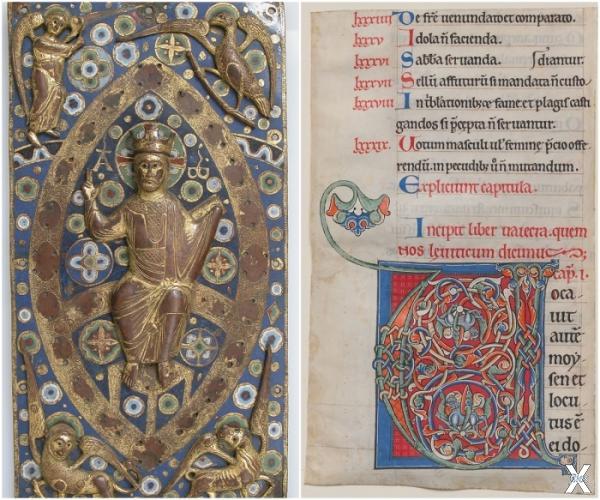 A ω
lxxxiiii De fr̄e uenundato et comparato.
lxxxv Idola ñ facienda.
lxxxvi Sabb̄a seruanda. diantur.
lxxxvii Bellū affuturū si mandata ñ custo
lxxxviii In fame et plagis casti
gandos si p̄cepta ñ seruantur.
lxxxix. Uotum masculi ul femine p̄cio offe
rendū in pecudib; ñ mutandum.
Expliciunt capitula.
Incipit liber uaiecra. quem
nos leuiticum dicimus;
cap̄. i.
V oca
uit
autē
moy
sen et
locu
tus ē
ei do
X